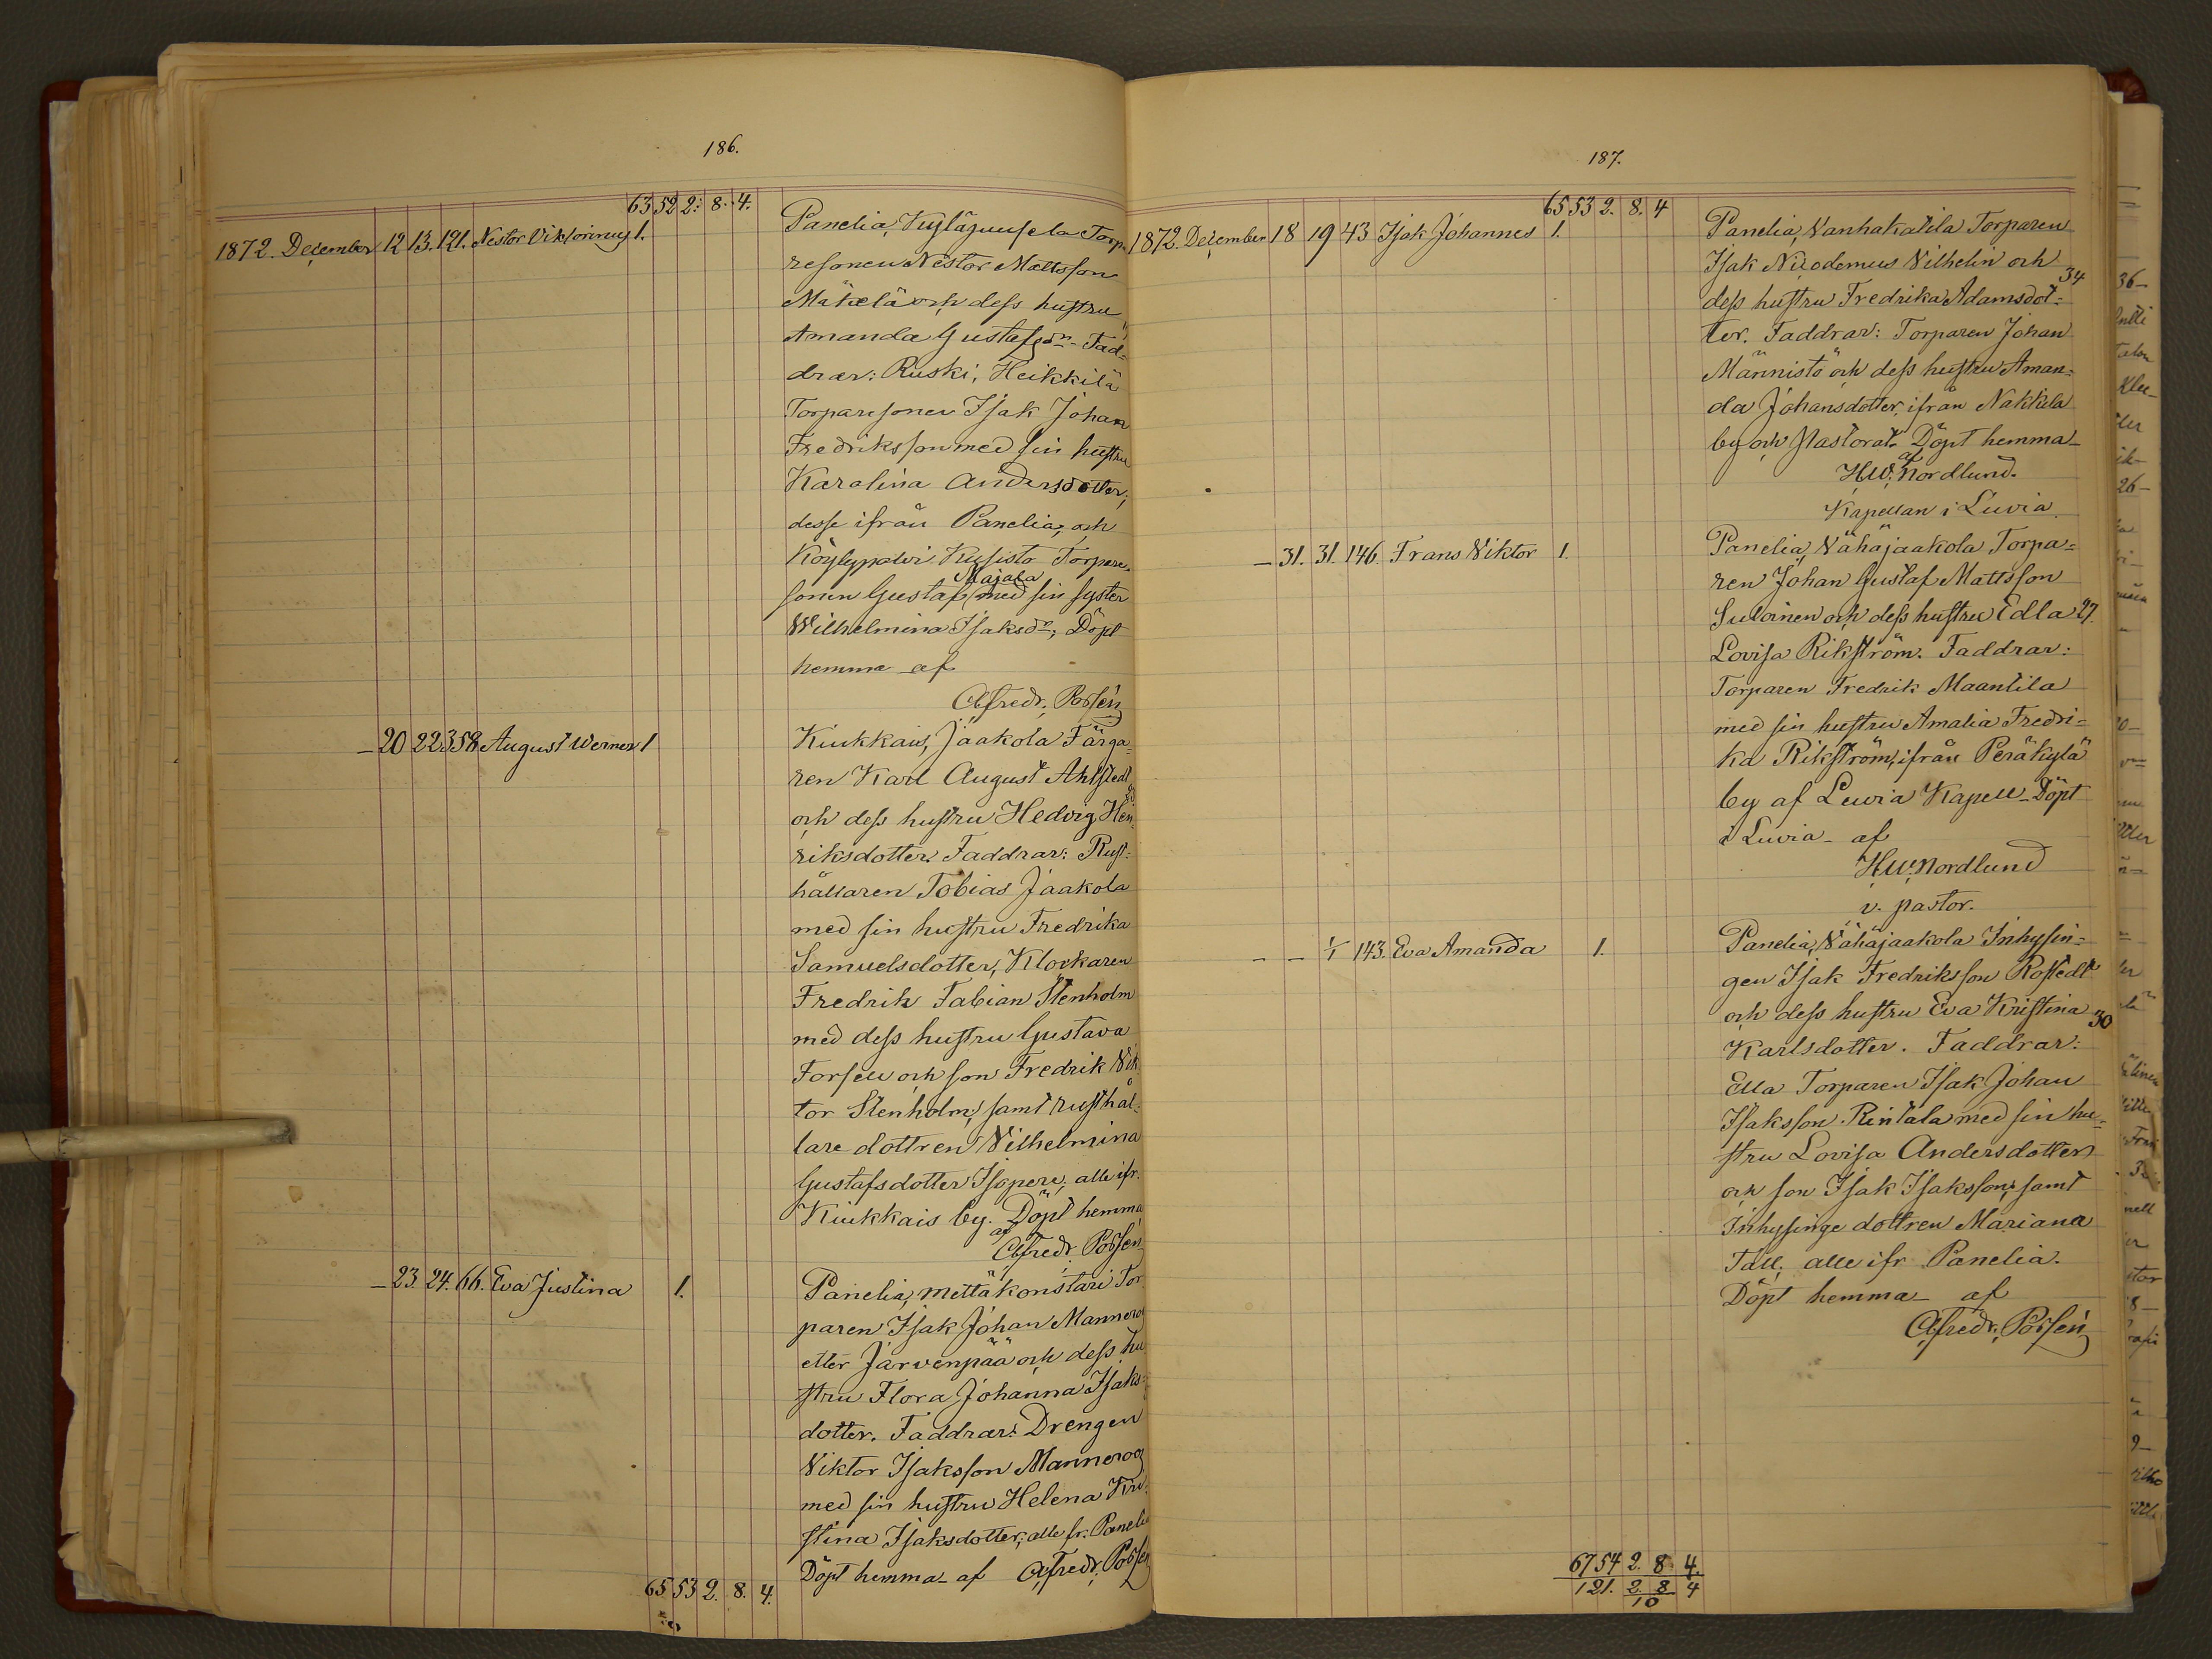 186.
63 52 2. 8. 4.
1872. December 12 13. 121. Nestor Viktorinus 1.
Panelia, Torpa
resonen Nestor Mattsson
Mäkelä och dess hustru
Amanda Gustafsdn. Fad=
drar: Ruski, Heikkilä
Torparesonen Isak Johan
Fredriksson med sin hustru
Karolina Andersdotter,
desse ifrån Panelia, och
Köylypolvi Kusisto Torpare
sonen Gustaf Majala med sin syster
Wilhelmina Isaksdr; Döpt
hemma af
Alfredr. Possén
— 20 22 358 August Werner 1
Kiukkais, Jaakola Färga=
ren Karl August Ahlstedt
och dess hustru Hedvig Hen=
riksdotter. Faddrar: Rust=
hållaren Tobias Jaakola
med sin hustru Fredrika
Samuelsdotter, Klockaren
Fredrik Fabian Stenholm
med dess hustru Gustava
Forsell och son Fredrik Vik
tor Stenholm, samt rusthål=
lare dottren Vilhelmina
Gustafsdotter Isopere, alle ifr.
Kiukkais by. Döpt hemma
af
Alfredr. Possén
— 23. 24. 66. Eva Justina 1.
Panelia, Mettäkonstari Tor
paren Isak Johan Manneroos
eller Järvenpää och dess hu
stru Flora Johanna Isaks=
dotter. Faddrar: Drengen
Viktor Isaksson Manneroos
med sin hustru Helena Kri
stina Isaksdotter, alle fr. Panelia
Döpt hemma af Alfredr. Possén
65 53 2. 8. 4.
187.
65 53 2. 8. 4
1872. December 18 19 43 Isak Johannes 1.
Panelia, Vanhakatila Torparen
Isak Nicodemus Vilhelin och
dess hustru Fredrika Adamsdot= 34
ter. Faddrar: Torparen Johan
Männistö och dess hustru Aman=
da Johansdotter, ifrån Nakkila
by och Pastorat. Döpt hemma
af
H.W. Nordlund.
Kapellan i Luvia.
— 31. 31. 146. Frans Viktor 1.
Panelia, Vähäjaakola Torpa=
ren Johan Gustaf Mattsson
Suloinen och dess hustru Edla 27.
Lovisa Rikström. Faddrar:
Torparen Fredrik Maantila
med sin hustru Amalia Fredri=
ka Rikström, ifrån Peräkylä
by af Luvia Kapell. Döpt
i Luvia af
H.W. Nordlund
v. pastor.
— — 1/1 143. Eva Amanda 1.
Panelia, Vähäjaakola Inhysin=
gen Isak Fredriksson Rostedt
och dess hustru Eva Kristina 30
Karlsdotter. Faddrar:
Ella Torparen Isak Johan
Isaksson Rintala med sin hu=
stru Lovisa Andersdotter
och son Isak Isaksson, samt
Inhysinge dottren Mariana
Tall, alle ifr Panelia.
Döpt hemma af
Alfredr. Possén
67 54 2. 8 4.
121. 2. 8. 4
10